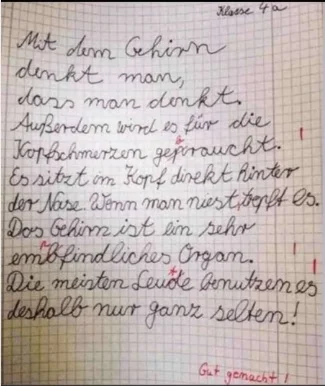 Klasse 4a
Mit dem Gehirn
denkt man,
dass man denkt.
Außerdem wird es für die
Kopfschmerzen gepraucht.
Es sitzt im Kopf direkt hinter
der Nase. Wenn man niest, tropft es.
Das Gehirn ist ein sehr
embfindliches Organ.
Die meisten Leude benutzen es
deshalb nur ganz selten!
Gut gemacht!